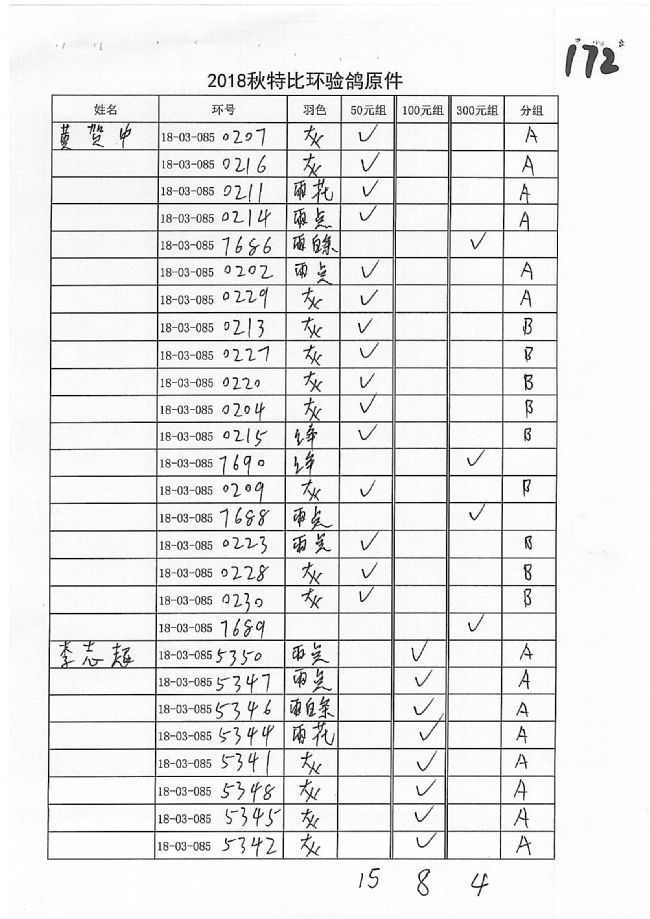 172
2018秋特比环验鸽原件
姓名 环号 羽色 50元组 100元组 300元组 分组
黄贺中 18-03-085 0207 灰 ✓ A
18-03-085 0216 灰 ✓ A
18-03-085 0211 雨花 ✓ A
18-03-085 0214 雨点 ✓ A
18-03-085 7686 雨白条 ✓
18-03-085 0202 雨点 ✓ A
18-03-085 0229 灰 ✓ A
18-03-085 0213 灰 ✓ B
18-03-085 0227 灰 ✓ B
18-03-085 0220 灰 ✓ B
18-03-085 0204 灰 ✓ B
18-03-085 0215 绛 ✓ B
18-03-085 7690 绛 ✓
18-03-085 0209 灰 ✓ B
18-03-085 7688 雨点 ✓
18-03-085 0223 雨点 ✓ B
18-03-085 0228 灰 ✓ B
18-03-085 0230 灰 ✓ B
18-03-085 7689 ✓
李志超 18-03-085 5350 雨点 ✓ A
18-03-085 5347 雨点 ✓ A
18-03-085 5346 雨白条 ✓ A
18-03-085 5344 雨花 ✓ A
18-03-085 5341 灰 ✓ A
18-03-085 5348 灰 ✓ A
18-03-085 5345 灰 ✓ A
18-03-085 5342 灰 ✓ A
15 8 4